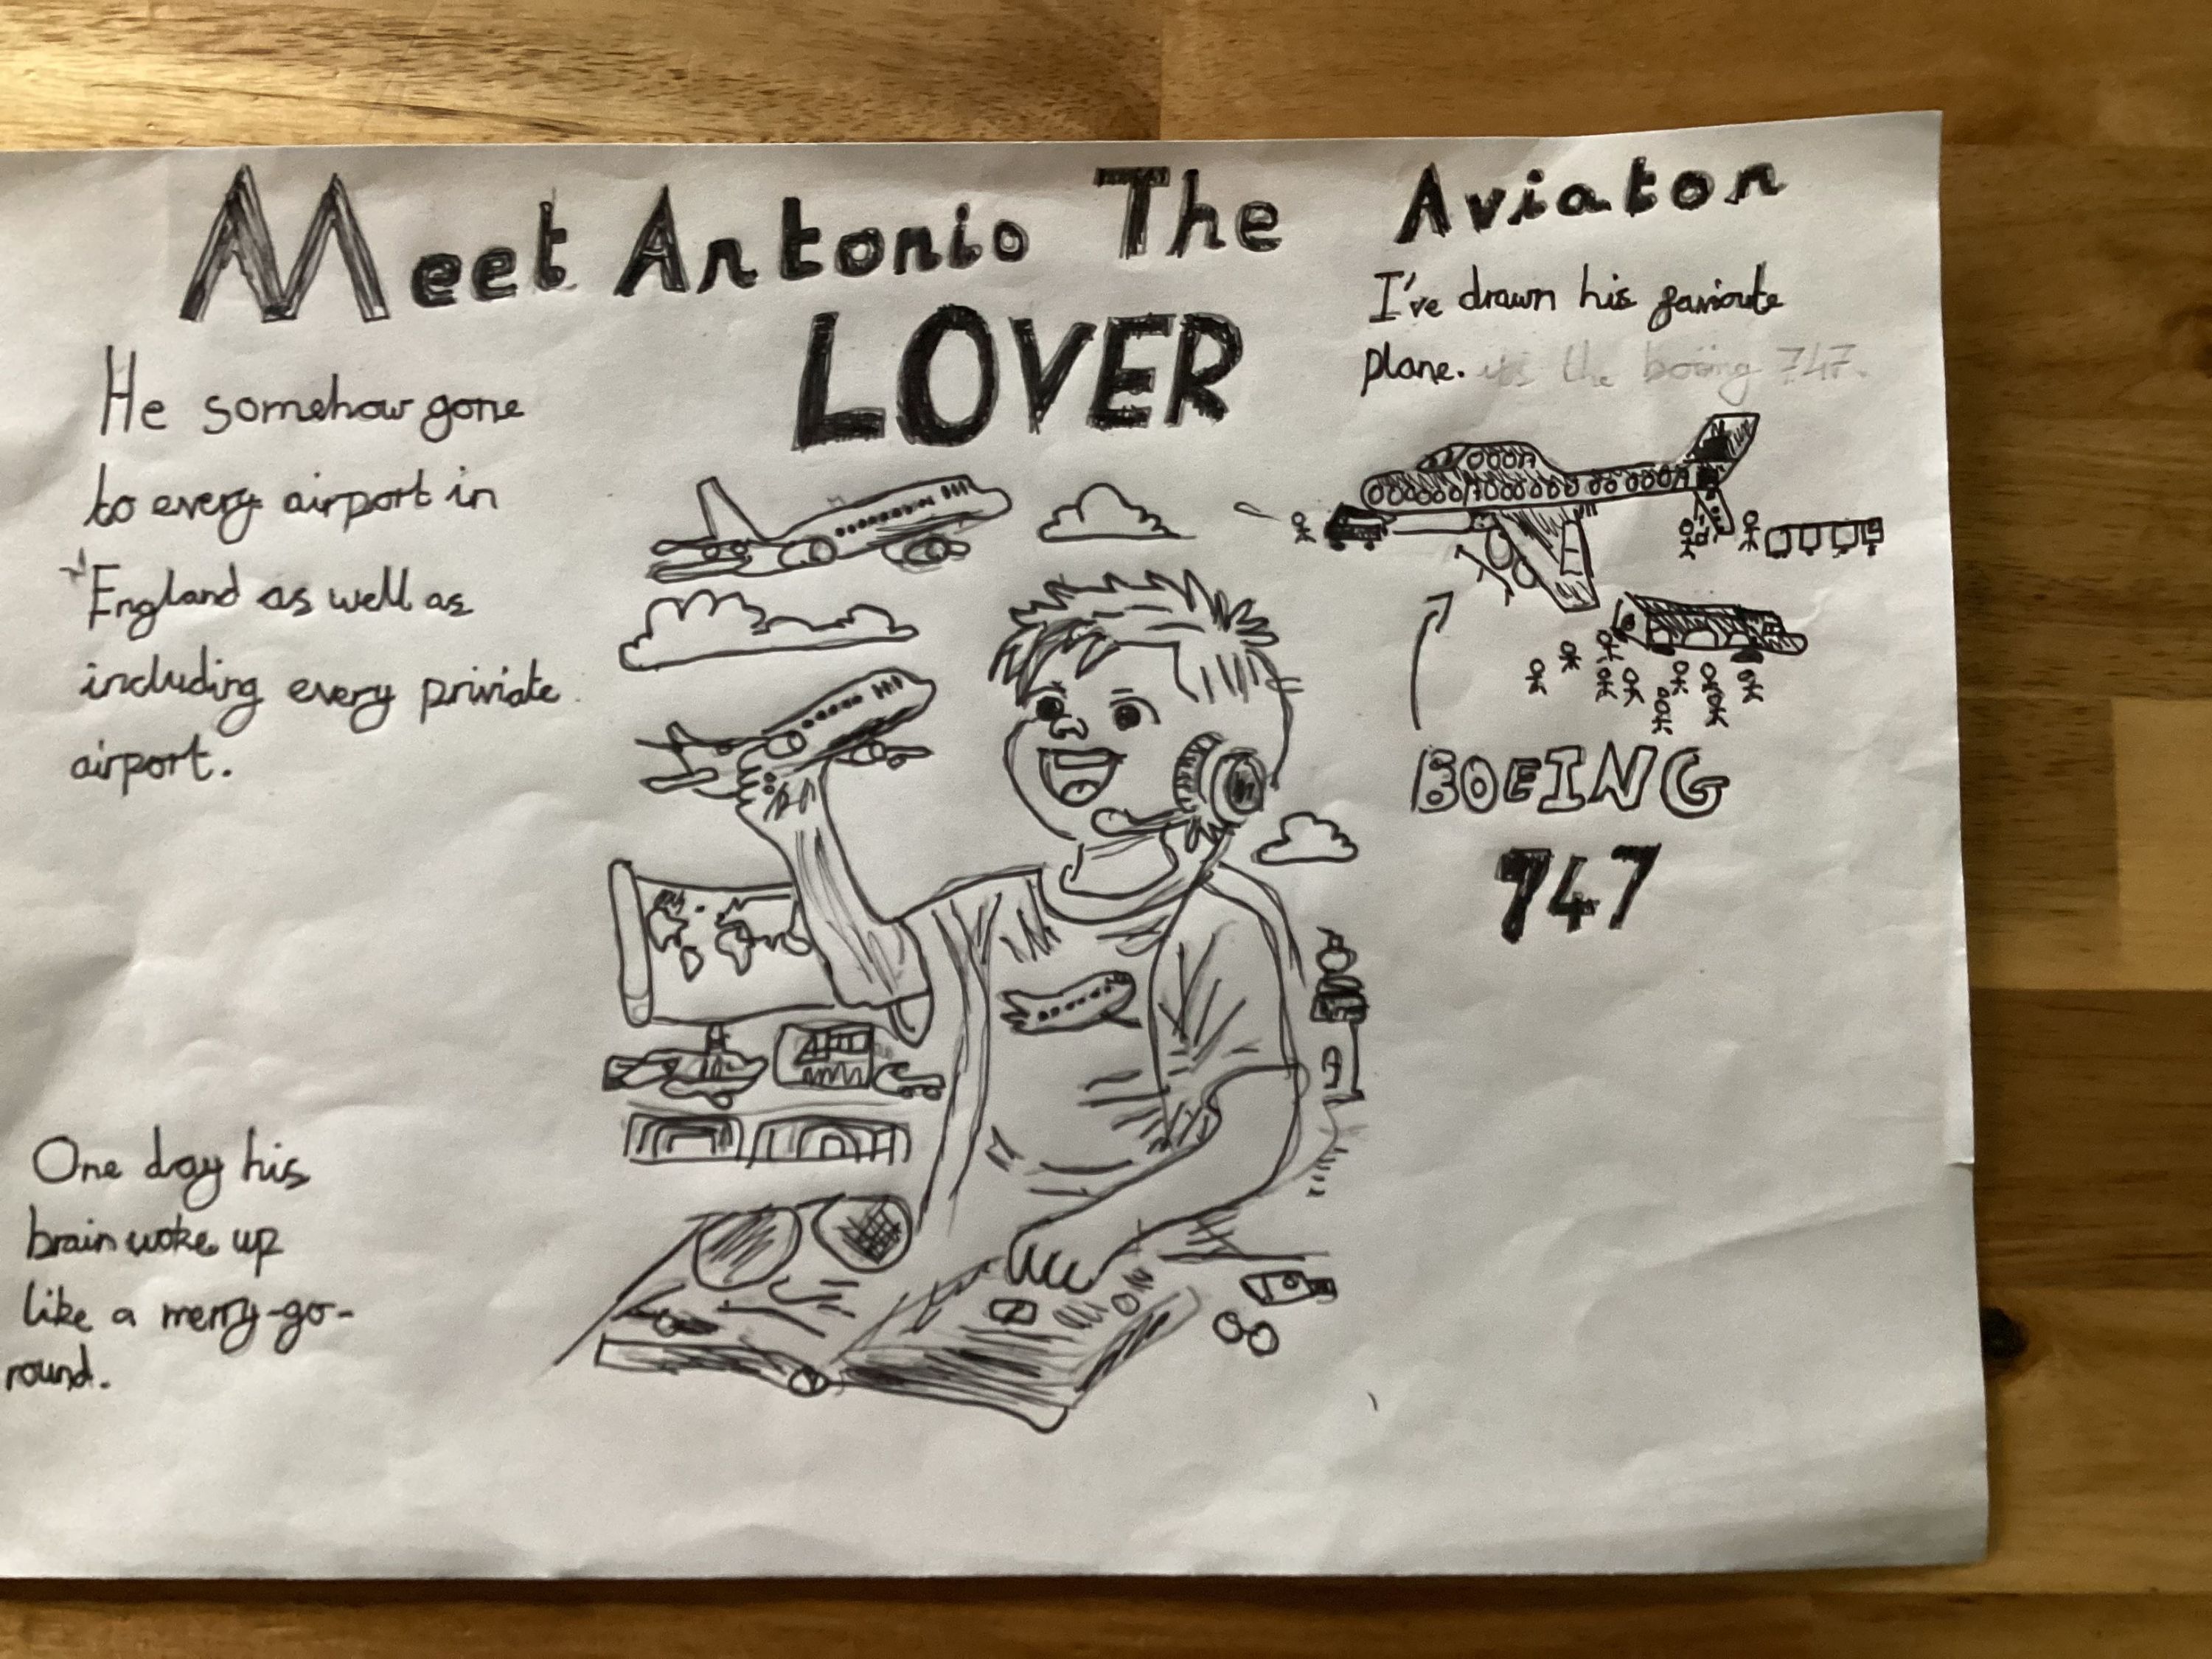 Meet Antonio The Aviaton
LOVER
He somehow gone
to every airport in
England as well as
including every priviate
airport.
One day his
brain woke up
like a merry-go-
round.
I've drawn his favioute
plane. it's the boiing 747.
BOEING
747